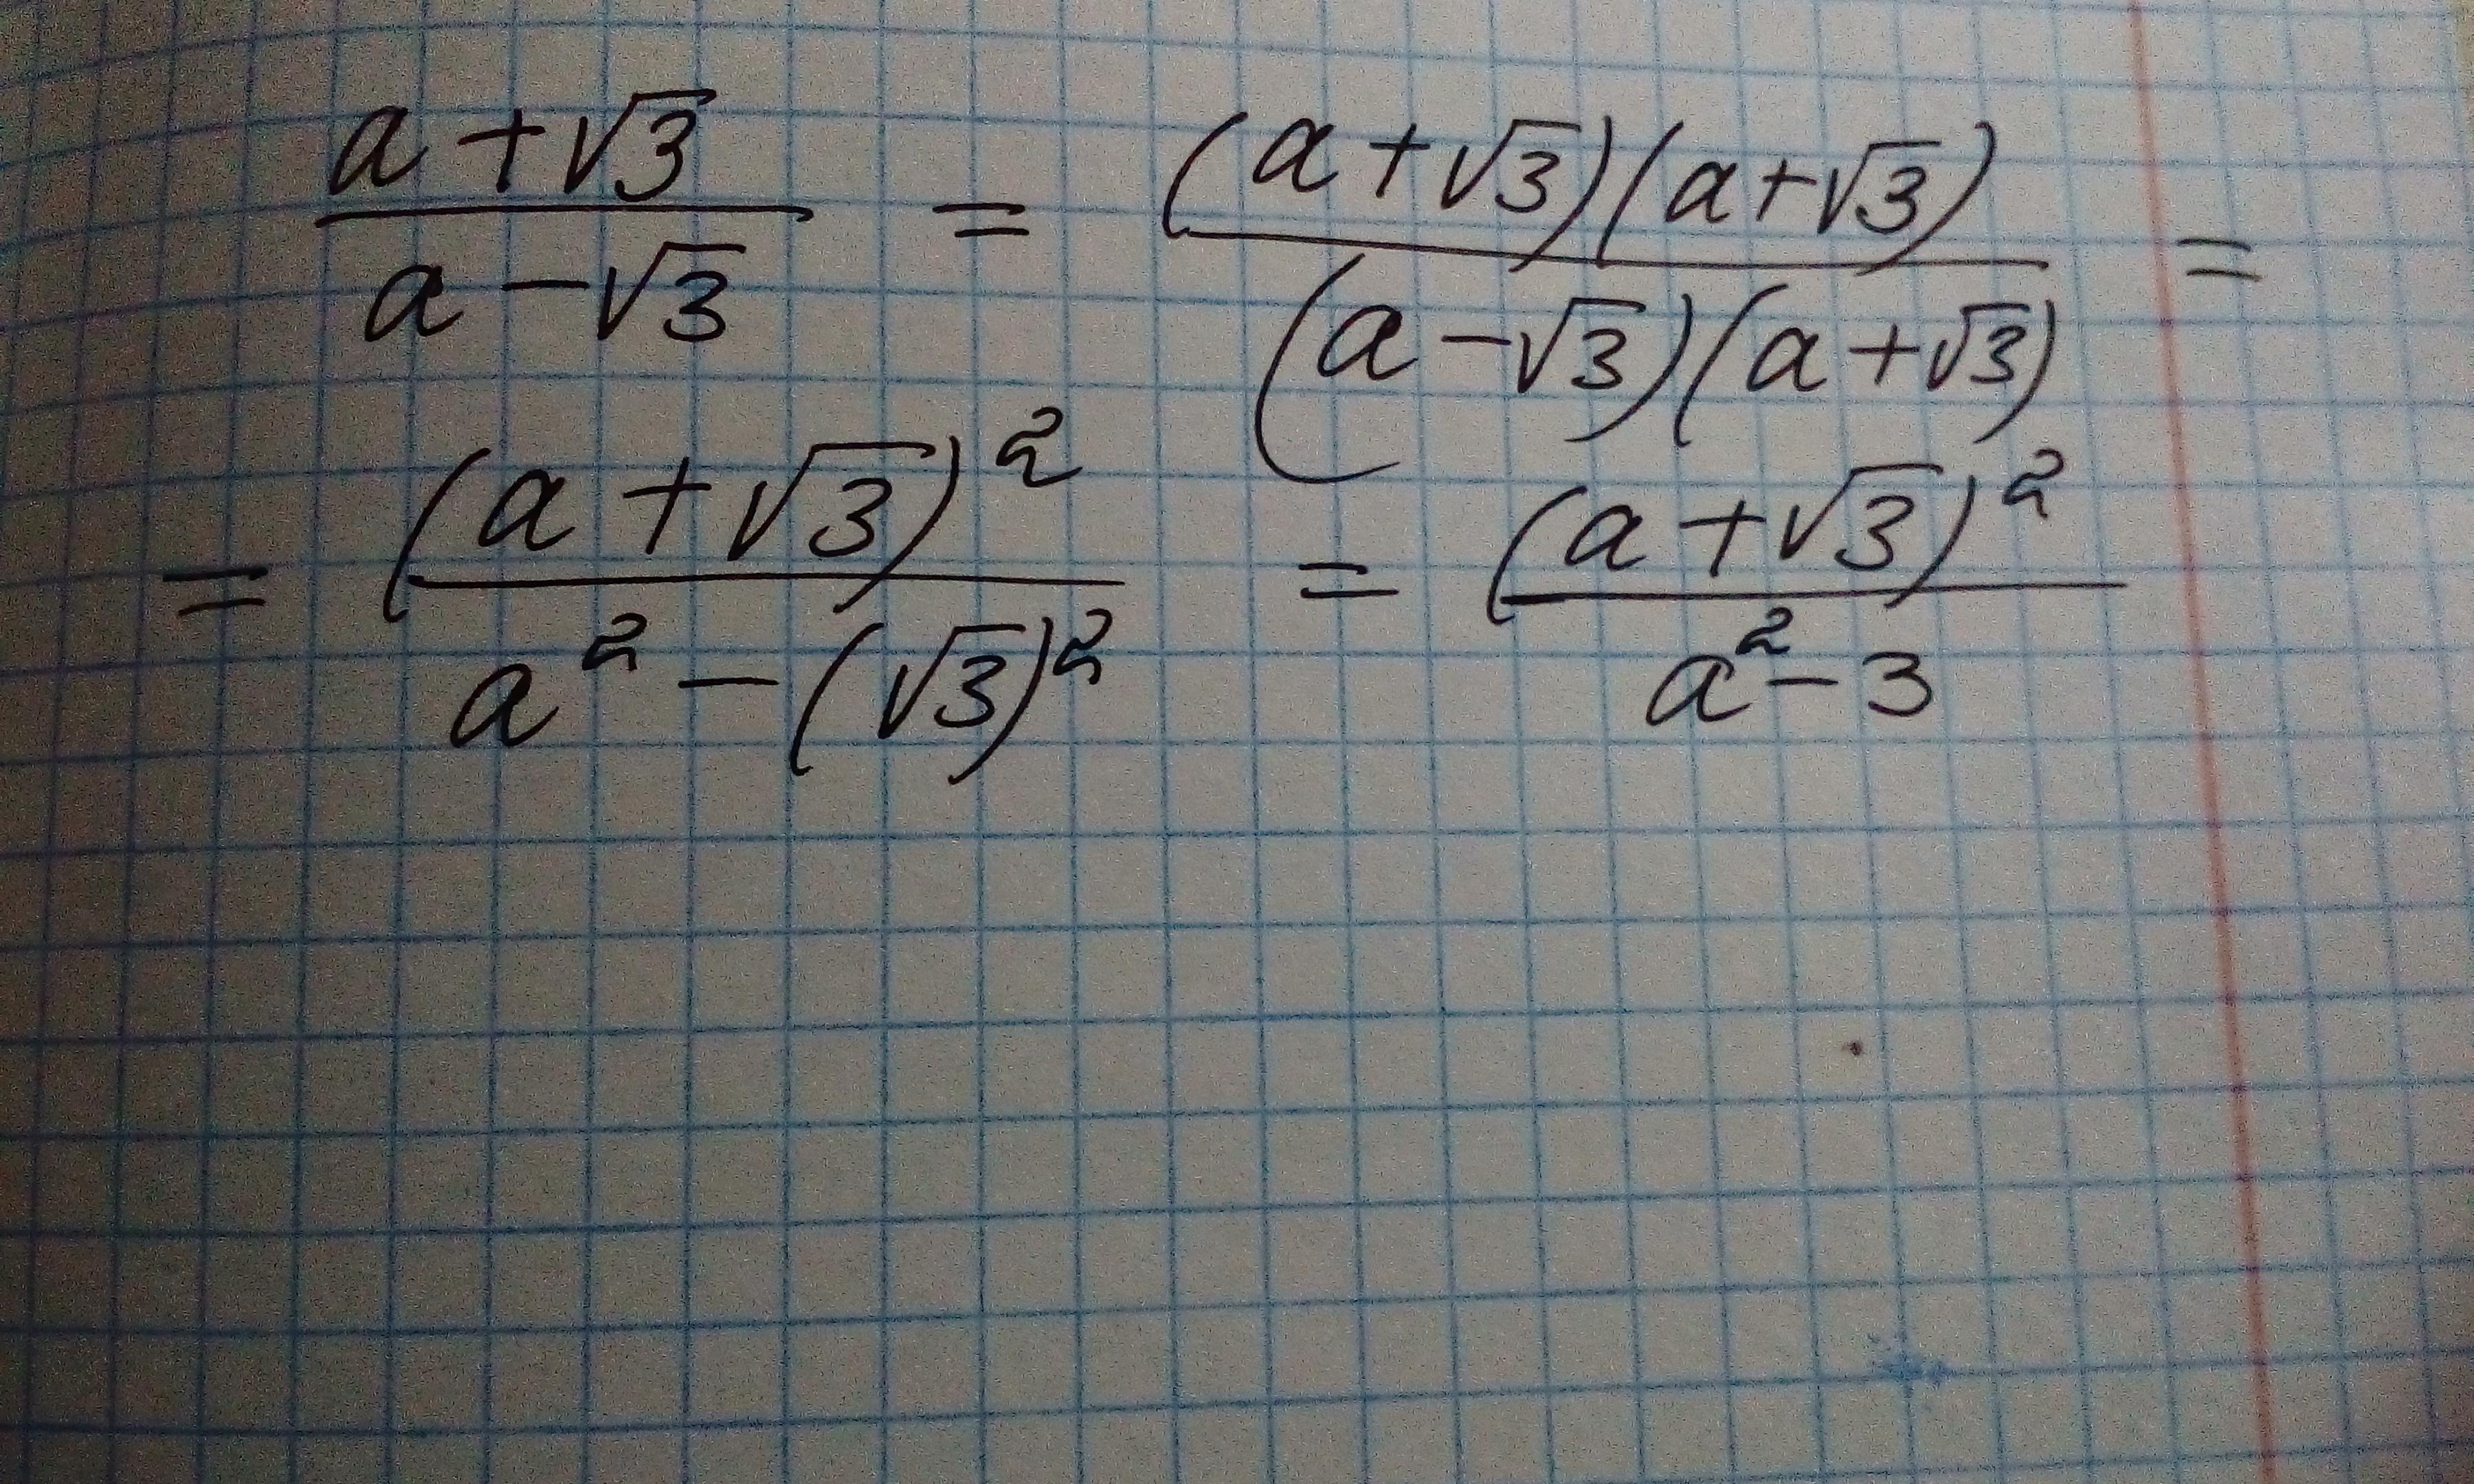 (a+√3)/(a-√3) = ((a+√3)(a+√3))/((a-√3)(a+√3)) =
= (a+√3)²/(a²-(√3)²) = (a+√3)²/(a²-3)